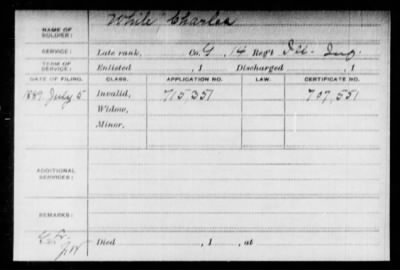 NAME OF SOLDIER: White, Charles
SERVICE: Late rank, Co. G, 14 Reg't Ill. Inf.
TERM OF SERVICE: Enlisted , 1 Discharged , 1
DATE OF FILING. CLASS. APPLICATION NO. LAW. CERTIFICATE NO.
1889, July 5 Invalid, 715351 707,551
Widow,
Minor,
ADDITIONAL SERVICES:
REMARKS:
Died , 1 , at